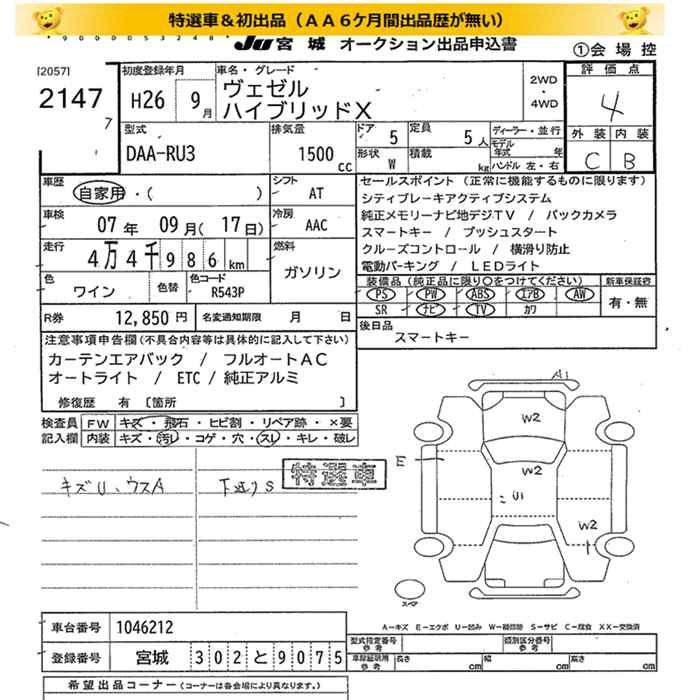 特選車＆初出品（ＡＡ６ケ月間出品歴が無い）
*90000053248*
JU宮城 オークション出品申込書
①会場控
[2057]
2147
7
初度登録年月
H26 9月
車名・グレード
ヴェゼル
ハイブリッドX
2WD
・
4WD
評価点
4
外装 内装
C B
型式
DAA-RU3
排気量
1500cc
ドア 5
定員 5人
形状 W
積載 kg
ディーラー・並行
モデル年式 年
ハンドル 左・右
車歴
自家用・( )
シフト
AT
車検
07年 09月(17日)
冷房
AAC
走行
4万4千986km
燃料
ガソリン
色
ワイン
色替
色コード
R543P
セールスポイント（正常に機能するものに限ります）
シティブレーキアクティブシステム
純正メモリーナビ地デジTV / バックカメラ
スマートキー / プッシュスタート
クルーズコントロール / 横滑り防止
電動パーキング / LEDライト
装備品（純正品に限り○をつけてください）
PS PW ABS エアB AW
SR ナビ TV カワ
新車保証書
有・無
R券 12,850円
名変通知期限 月 日
後日品
スマートキー
注意事項申告欄（不具合内容等は具体的に記入して下さい）
カーテンエアバック / フルオートAC
オートライト / ETC / 純正アルミ
修復歴 有〔箇所 〕
検査員記入欄
FW キズ・飛石・ヒビ割・リペア跡・×要
内装 キズ・汚レ・コゲ・穴・スレ・キレ・破レ
特選車
キズU、ウスA
下廻りS
A1
W2
E
W2
U1
W2
スペア
A−キズ E−エクボ U−凹み W−補修跡 S−サビ C−腐食 XX−交換済
車台番号 1046212
登録番号 宮城 302と9075
型式指定番号 参考
類別区分番号 参考
車検証記明 参考
長さ cm
幅 cm
高さ cm
希望出品コーナー（コーナーは各会場により異なります。）